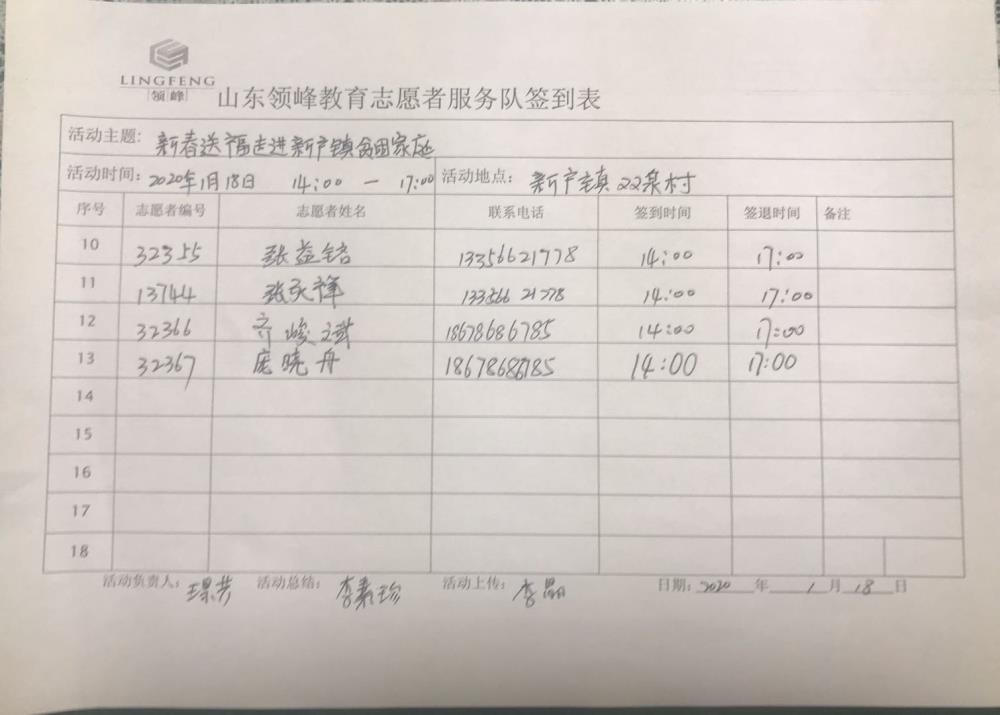 LINGFENG
领峰
山东领峰教育志愿者服务队签到表
活动主题: 新春送福走进新户镇贫困家庭
活动时间: 2020年1月18日 14:00 — 17:00 活动地点: 新户镇22泉村
序号 志愿者编号 志愿者姓名 联系电话 签到时间 签退时间 备注
10 32355 张益铭 13356621778 14:00 17:00
11 13744 张永祥 13356621778 14:00 17:00
12 32366 齐峻斌 18678686785 14:00 17:00
13 32367 庞晓丹 18678686785 14:00 17:00
14
15
16
17
18
活动负责人: 活动总结: 李素珍 活动上传: 李晶 日期: 2020 年 1 月 18 日